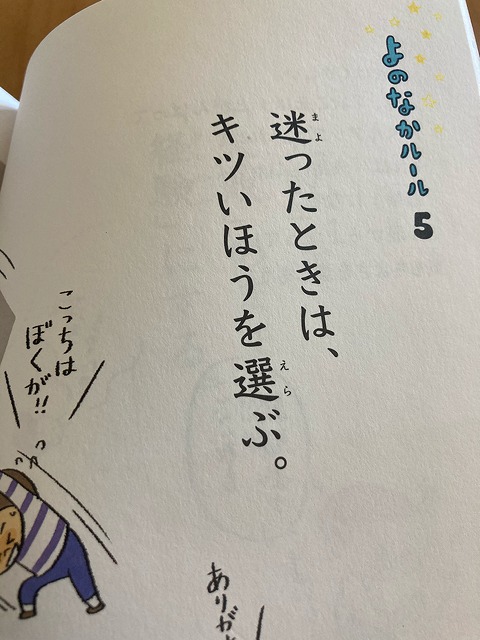 よのなかルール 5
迷ったときは、
キツいほうを選ぶ。
まよ
えら
こっちは
ぼくが!!
ありが